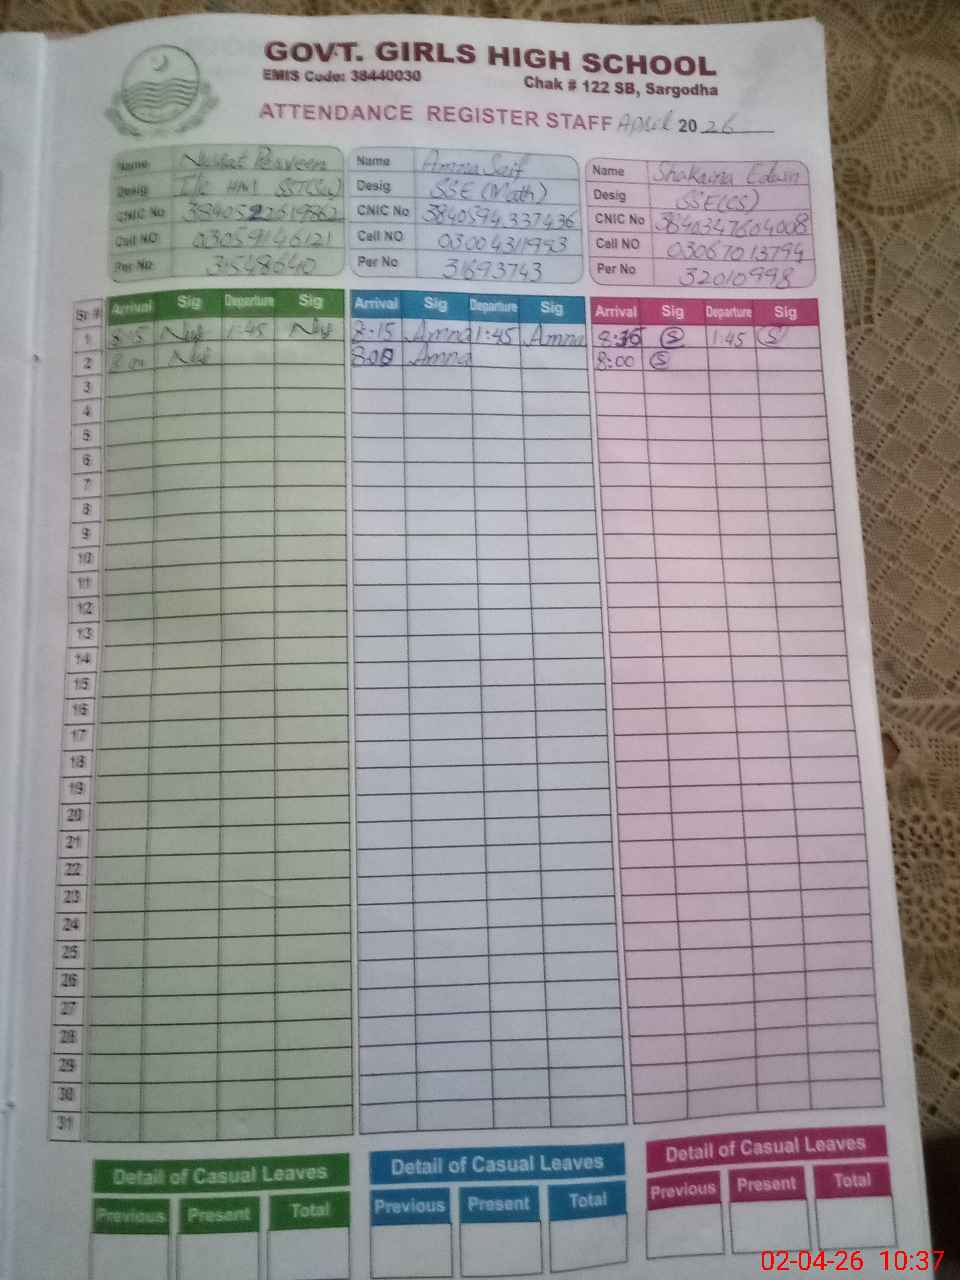 GOVT. GIRLS HIGH SCHOOL
EMIS Code: 38440030
Chak # 122 SB, Sargodha
ATTENDANCE REGISTER STAFF April 2026
Name Nusrat Parveen
Desig I/c HM SST(Sci)
CNIC No
Cell NO 03059146121
Per No 31548640
Name Amna Saif
Desig SSE (Math)
CNIC No 3840594337436
Cell NO 03004311993
Per No 31693743
Name Shakaina Edwin
Desig SSE(CS)
CNIC No 3840347604008
Cell NO 03067013794
Per No 32010998
Sr # Arrival Sig Departure Sig Arrival Sig Departure Sig Arrival Sig Departure Sig
1 8:15 1:45 8:15 Amna 1:45 Amna S 1:45 S
2 8:00 Amna 8:00 S
3
4
5
6
7
8
9
10
11
12
13
14
15
16
17
18
19
20
21
22
23
24
25
26
27
28
29
30
31
Detail of Casual Leaves
Previous Present Total
Detail of Casual Leaves
Previous Present Total
Detail of Casual Leaves
Previous Present Total
02-04-26 10:37